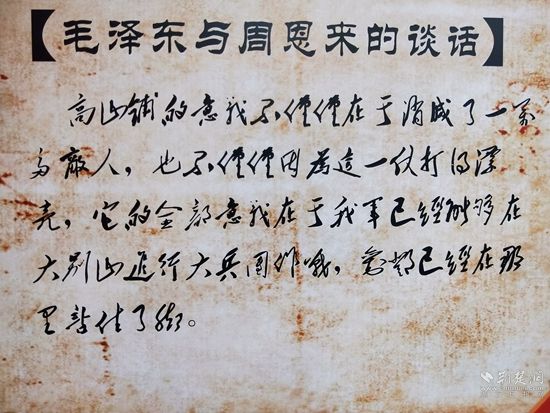 【毛泽东与周恩来的谈话】
高山铺的意義不僅僅在于消滅了一萬
多敵人，也不僅僅因為這一仗打得漂
亮，它的全部意義在于我軍已經能够在
大别山進行大兵團作戰，劉鄧已經在那
里站住了脚。
荆楚网